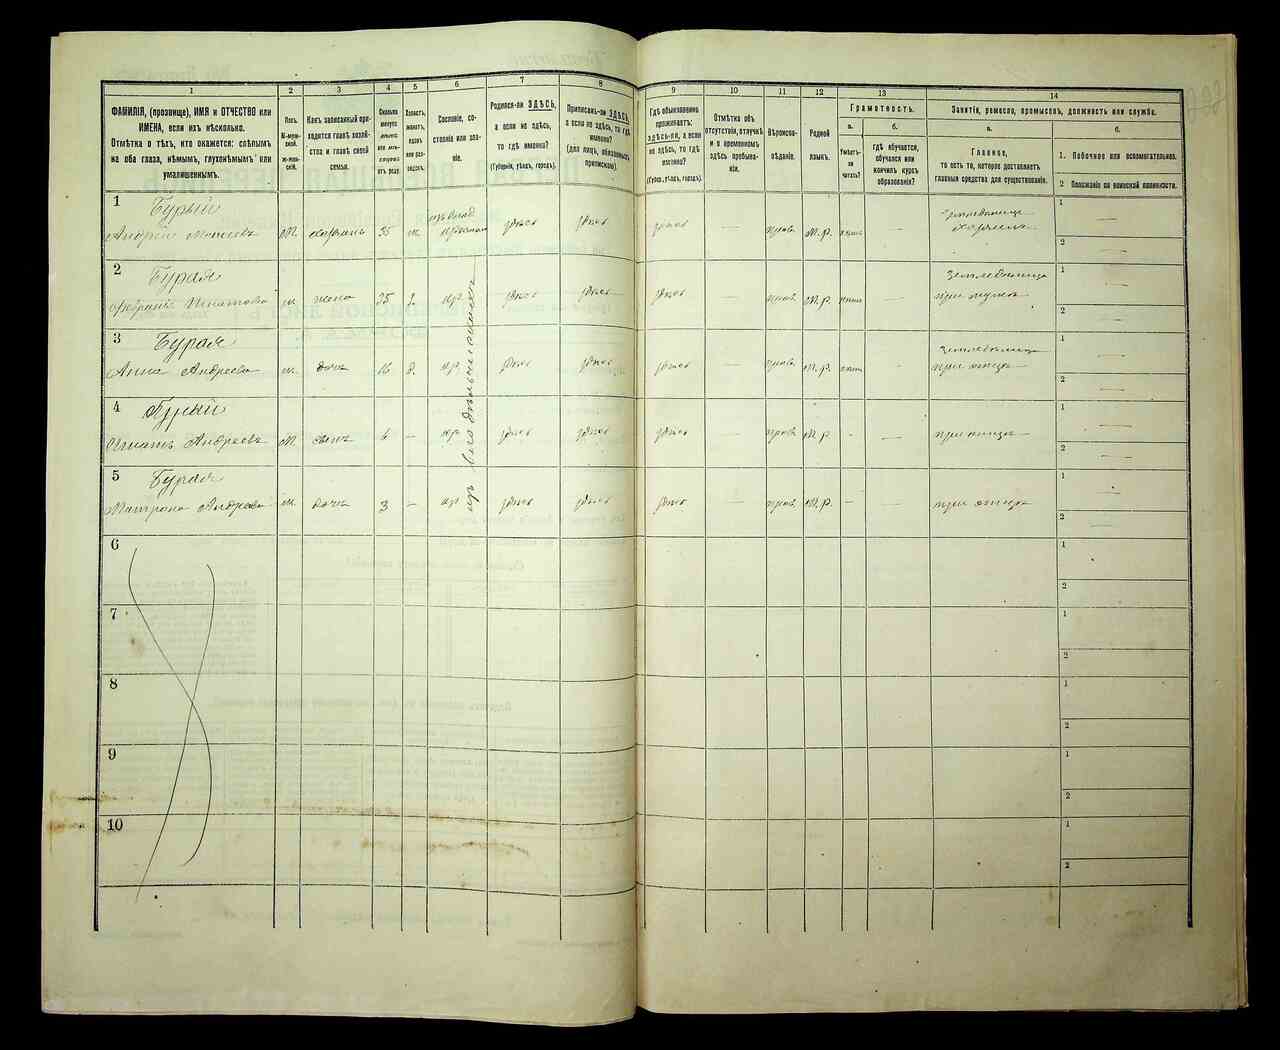 1 2 3 4 5 6 7 8 9 10 11 12 13 14
ФАМИЛІЯ, (прозвище), ИМЯ и ОТЧЕСТВО или
ИМЕНА, если ихъ нѣсколько.
Отмѣтка о тѣхъ, кто окажется: слѣпымъ
на оба глаза, нѣмымъ, глухонѣмымъ или
умалишеннымъ.
Полъ.
М-муж-
ской.
ж-жен-
скій.
Какъ записанный при-
ходится главѣ хозяй-
ства и главѣ своей
семьи.
Сколько
минуло
лѣтъ
или мѣ-
сяцевъ
отъ роду.
Холостъ,
женатъ,
вдовъ
или раз-
веденъ.
Состояніе, со-
словіе или зва-
ніе.
Родился-ли ЗДѢСЬ,
а если не здѣсь,
то гдѣ именно?
(Губернія, уѣздъ, городъ).
Приписанъ-ли ЗДѢСЬ,
а если не здѣсь, то гдѣ
именно?
(для лицъ, обязанныхъ
припискою).
Гдѣ обыкновенно
проживаетъ:
здѣсь-ли, а если
не здѣсь, то гдѣ
именно?
(Губер., уѣздъ, городъ).
Отмѣтка объ
отсутствіи, отлучкѣ
и о временномъ
здѣсь пребыва-
ніи.
Вѣроиспо-
вѣданіе.
Родной
языкъ.
Грамотность.
а. б.
Умѣетъ-
ли
читать?
гдѣ обучается,
обучался или
кончилъ курсъ
образованія?
Занятіе, ремесло, промыселъ, должность или служба.
а. б.
Главное,
то есть то, которое доставляетъ
главныя средства для существованія.
1. Побочное или вспомогательное.
2 Положеніе по воинской повинности.
1 Бурый
Андрей Моисеевъ М. хозяинъ 35 ж. здѣсь здѣсь здѣсь — прав. М.р. — Земледѣлецъ
хозяинъ 1 —
2 —
2 Бурая
Игнатова ж жена 35 з. кр. здѣсь здѣсь здѣсь — прав. М.р. — Земледѣлица
при мужѣ 1 —
2
3 Бурая
Анна Андреева ж. дочь 16 д. кр. здѣсь здѣсь здѣсь — прав. М.р. — Земледѣлица
при отцѣ 1 —
2 —
4 Бурый
Игнатъ Андреевъ М. сынъ 6 — кр здѣсь здѣсь здѣсь — прав. М.р. - — при отцѣ 1 —
2 —
5 Бурая
Матрона Андреева ж. дочь 3 — кр. здѣсь здѣсь здѣсь — прав. М.р. — при отцѣ 1 —
2 —
изъ владѣльческихъ
6 1
2
7 1
2
8 1
2
9 1
2
10 1
2